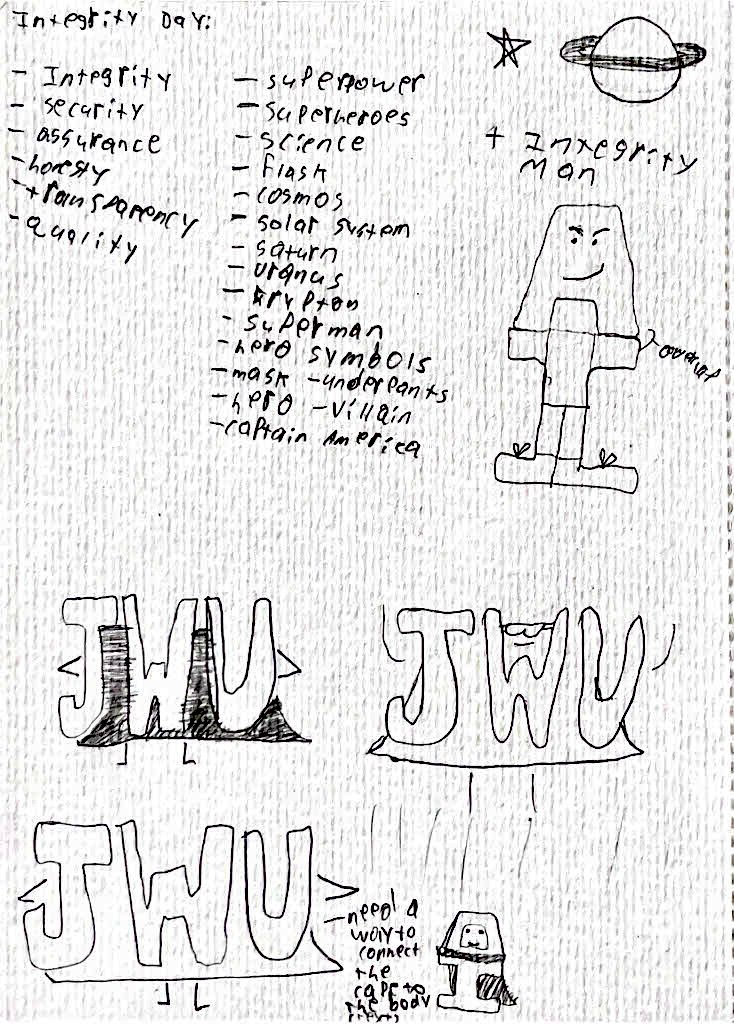 Integrity Day:
- Integrity
- security
- assurance
- honesty
- transparency
- quality
- superpower
- superheroes
- science
- flask
- cosmos
- solar system
- saturn
- uranus
- krypton
- superman
- hero symbols
- mask - underpants
- hero - villain
- captain America
+ Integrity
Man
JWU
JWU
JWU
- need a
way to
connect
the
cape to
the body